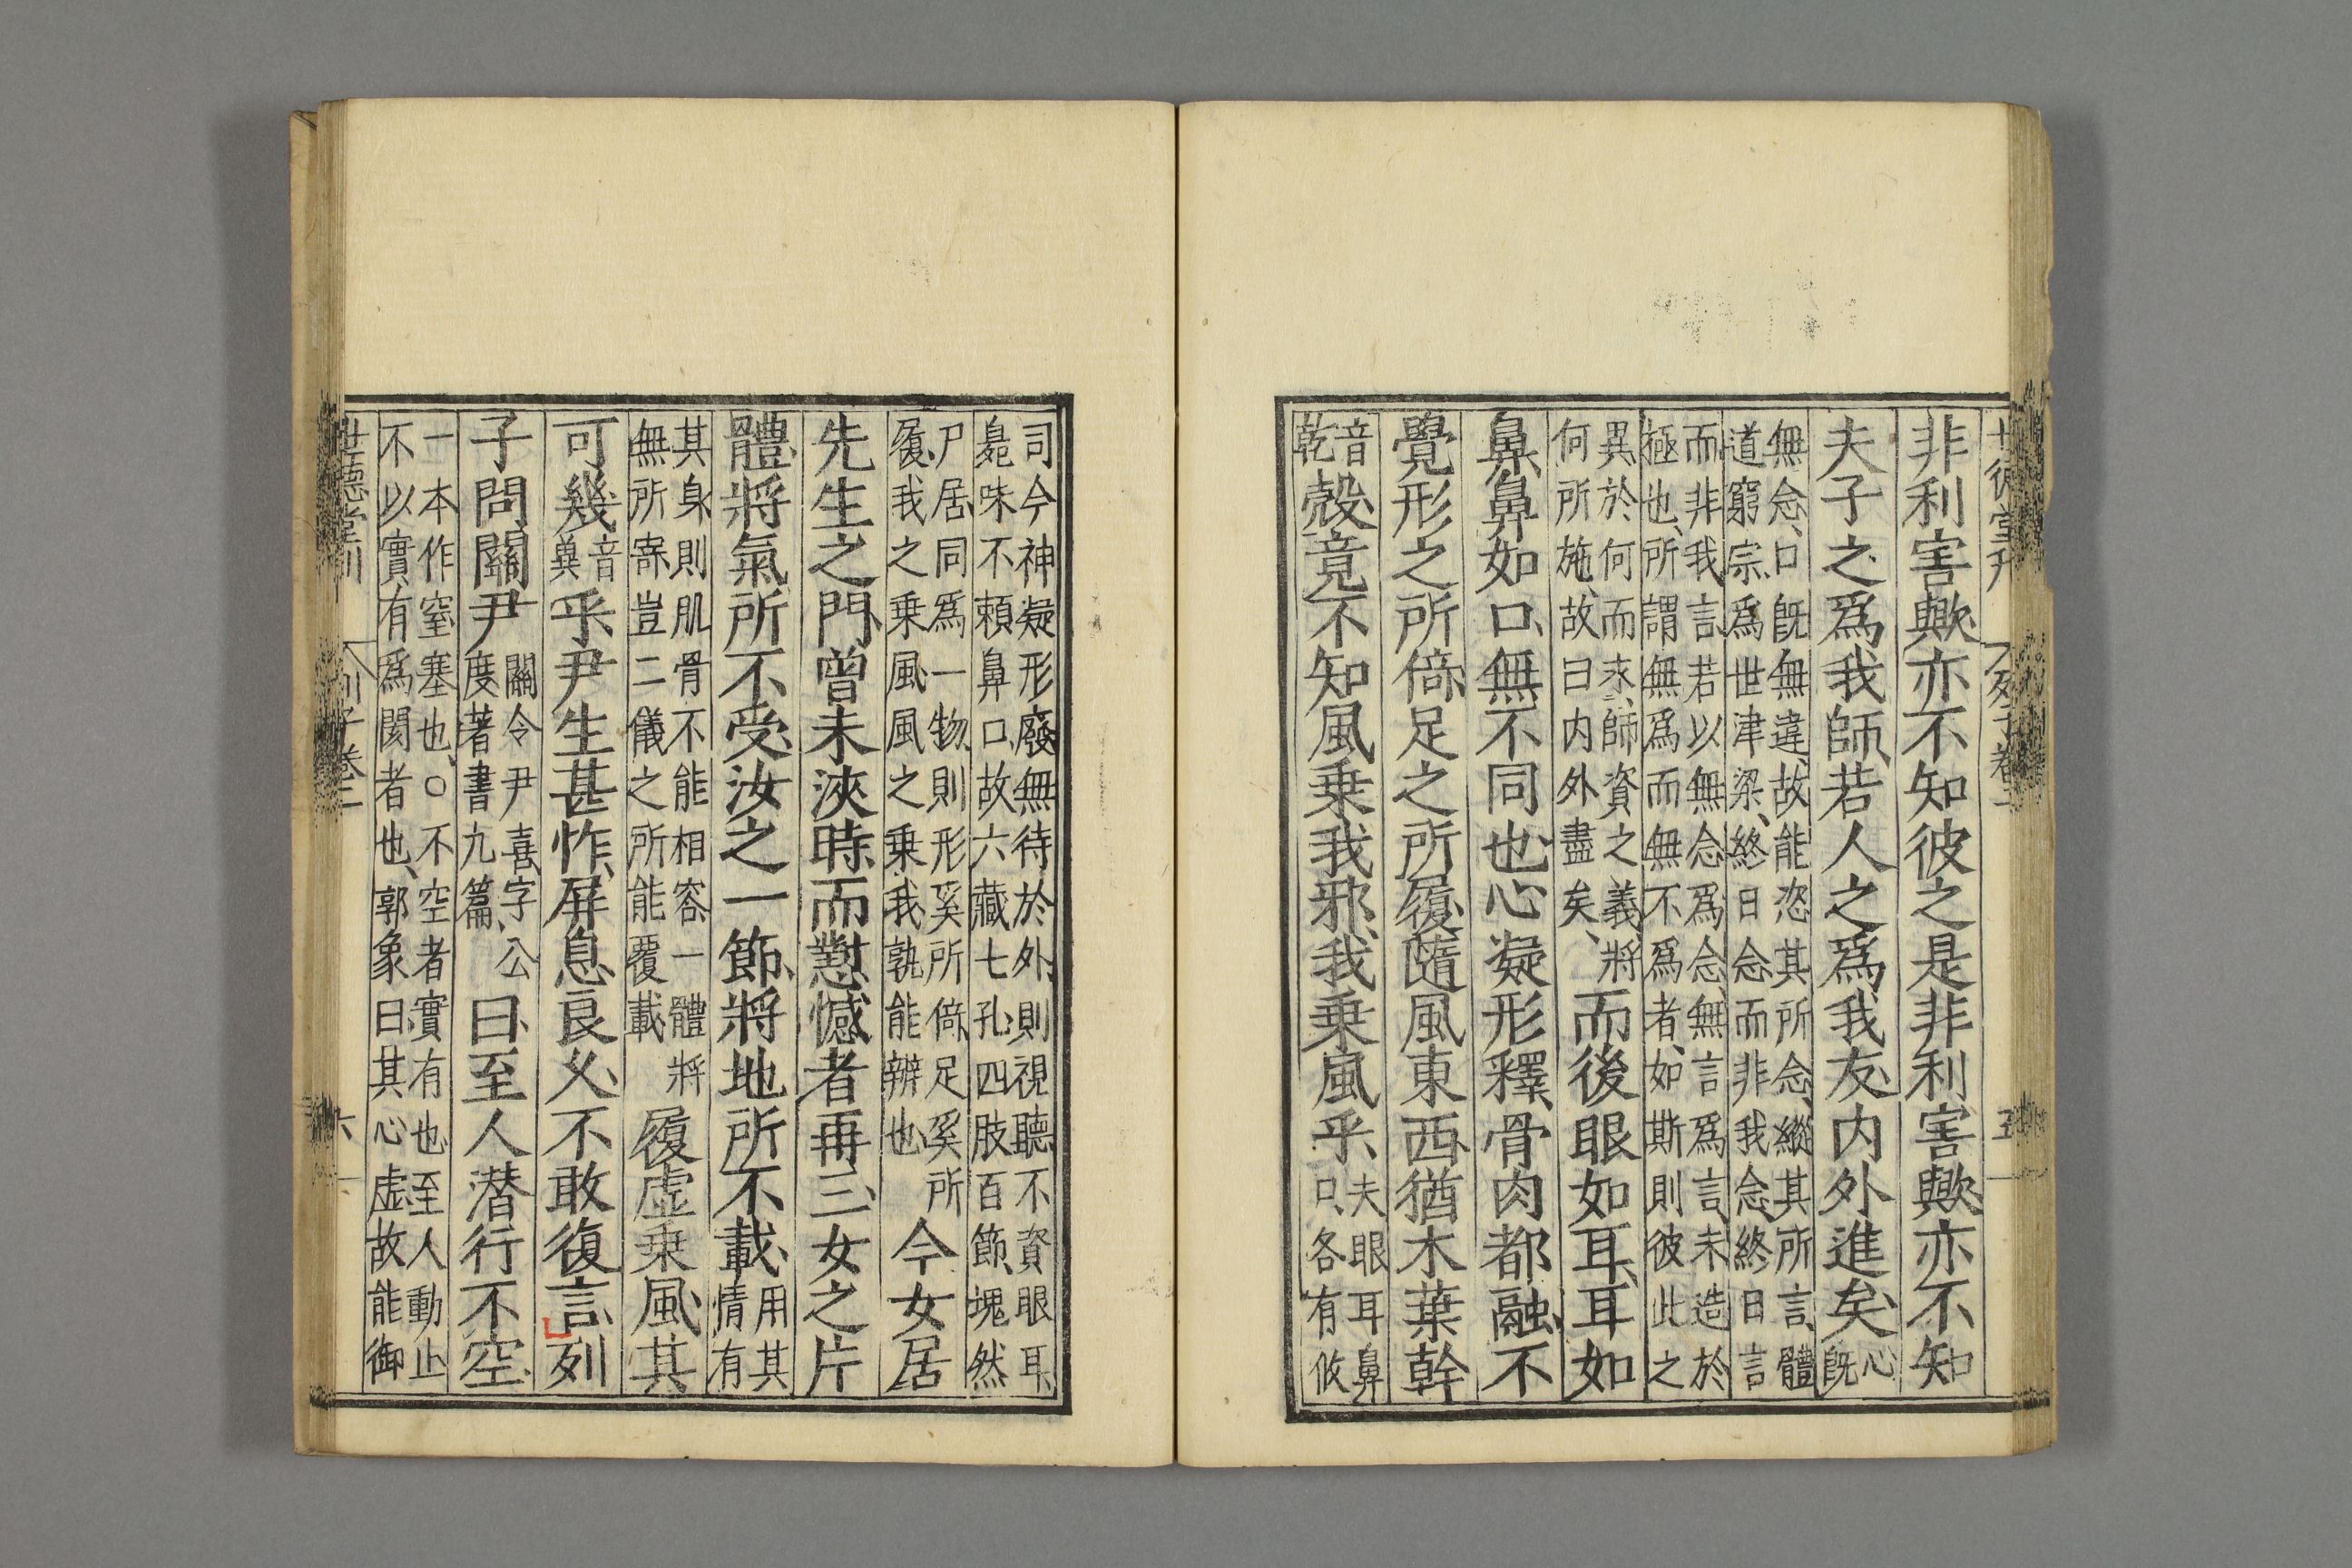 世德堂刊 列子卷二 五
非利害歟亦不知彼之是非利害歟亦不知
夫子之爲我師若人之爲我友内外進矣心既
無念口既無違故能恣其所念縱其所言體
道窮宗爲世津梁終日念而非我念終日言
而非我言若以無念爲念無言爲言未造於
極也所謂無爲而無不爲者如斯則彼此之
異於何而求師資之義將
何所施故曰内外盡矣而後眼如耳耳如
鼻鼻如口無不同也心凝形釋骨肉都融不
覺形之所倚足之所履隨風東西猶木葉幹
音乾殼竟不知風乗我邪我乗風乎夫眼耳鼻口各有攸
司今神凝形廢無待於外則視聽不資眼耳
臰味不頼鼻口故六藏七孔四肢百節塊然
尸居同爲一物則形奚所倚足奚所
履我之乗風風之乗我孰能辨也今女居
先生之門曾未浹時而懟憾者再三女之片
體將氣所不受汝之一節將地所不載用其情有
其身則肌骨不能相容一體將
無所寄豈二儀之所能覆載履虚乗風其
可幾音兾乎尹生甚怍屏息良乆不敢復言列
子問關尹關令尹喜字公度著書九篇曰至人潜行不空
一本作窒塞也○不空者實有也至人動止
不以實有爲閡者也郭象曰其心虚故能御
世德堂刊 列子卷二 六